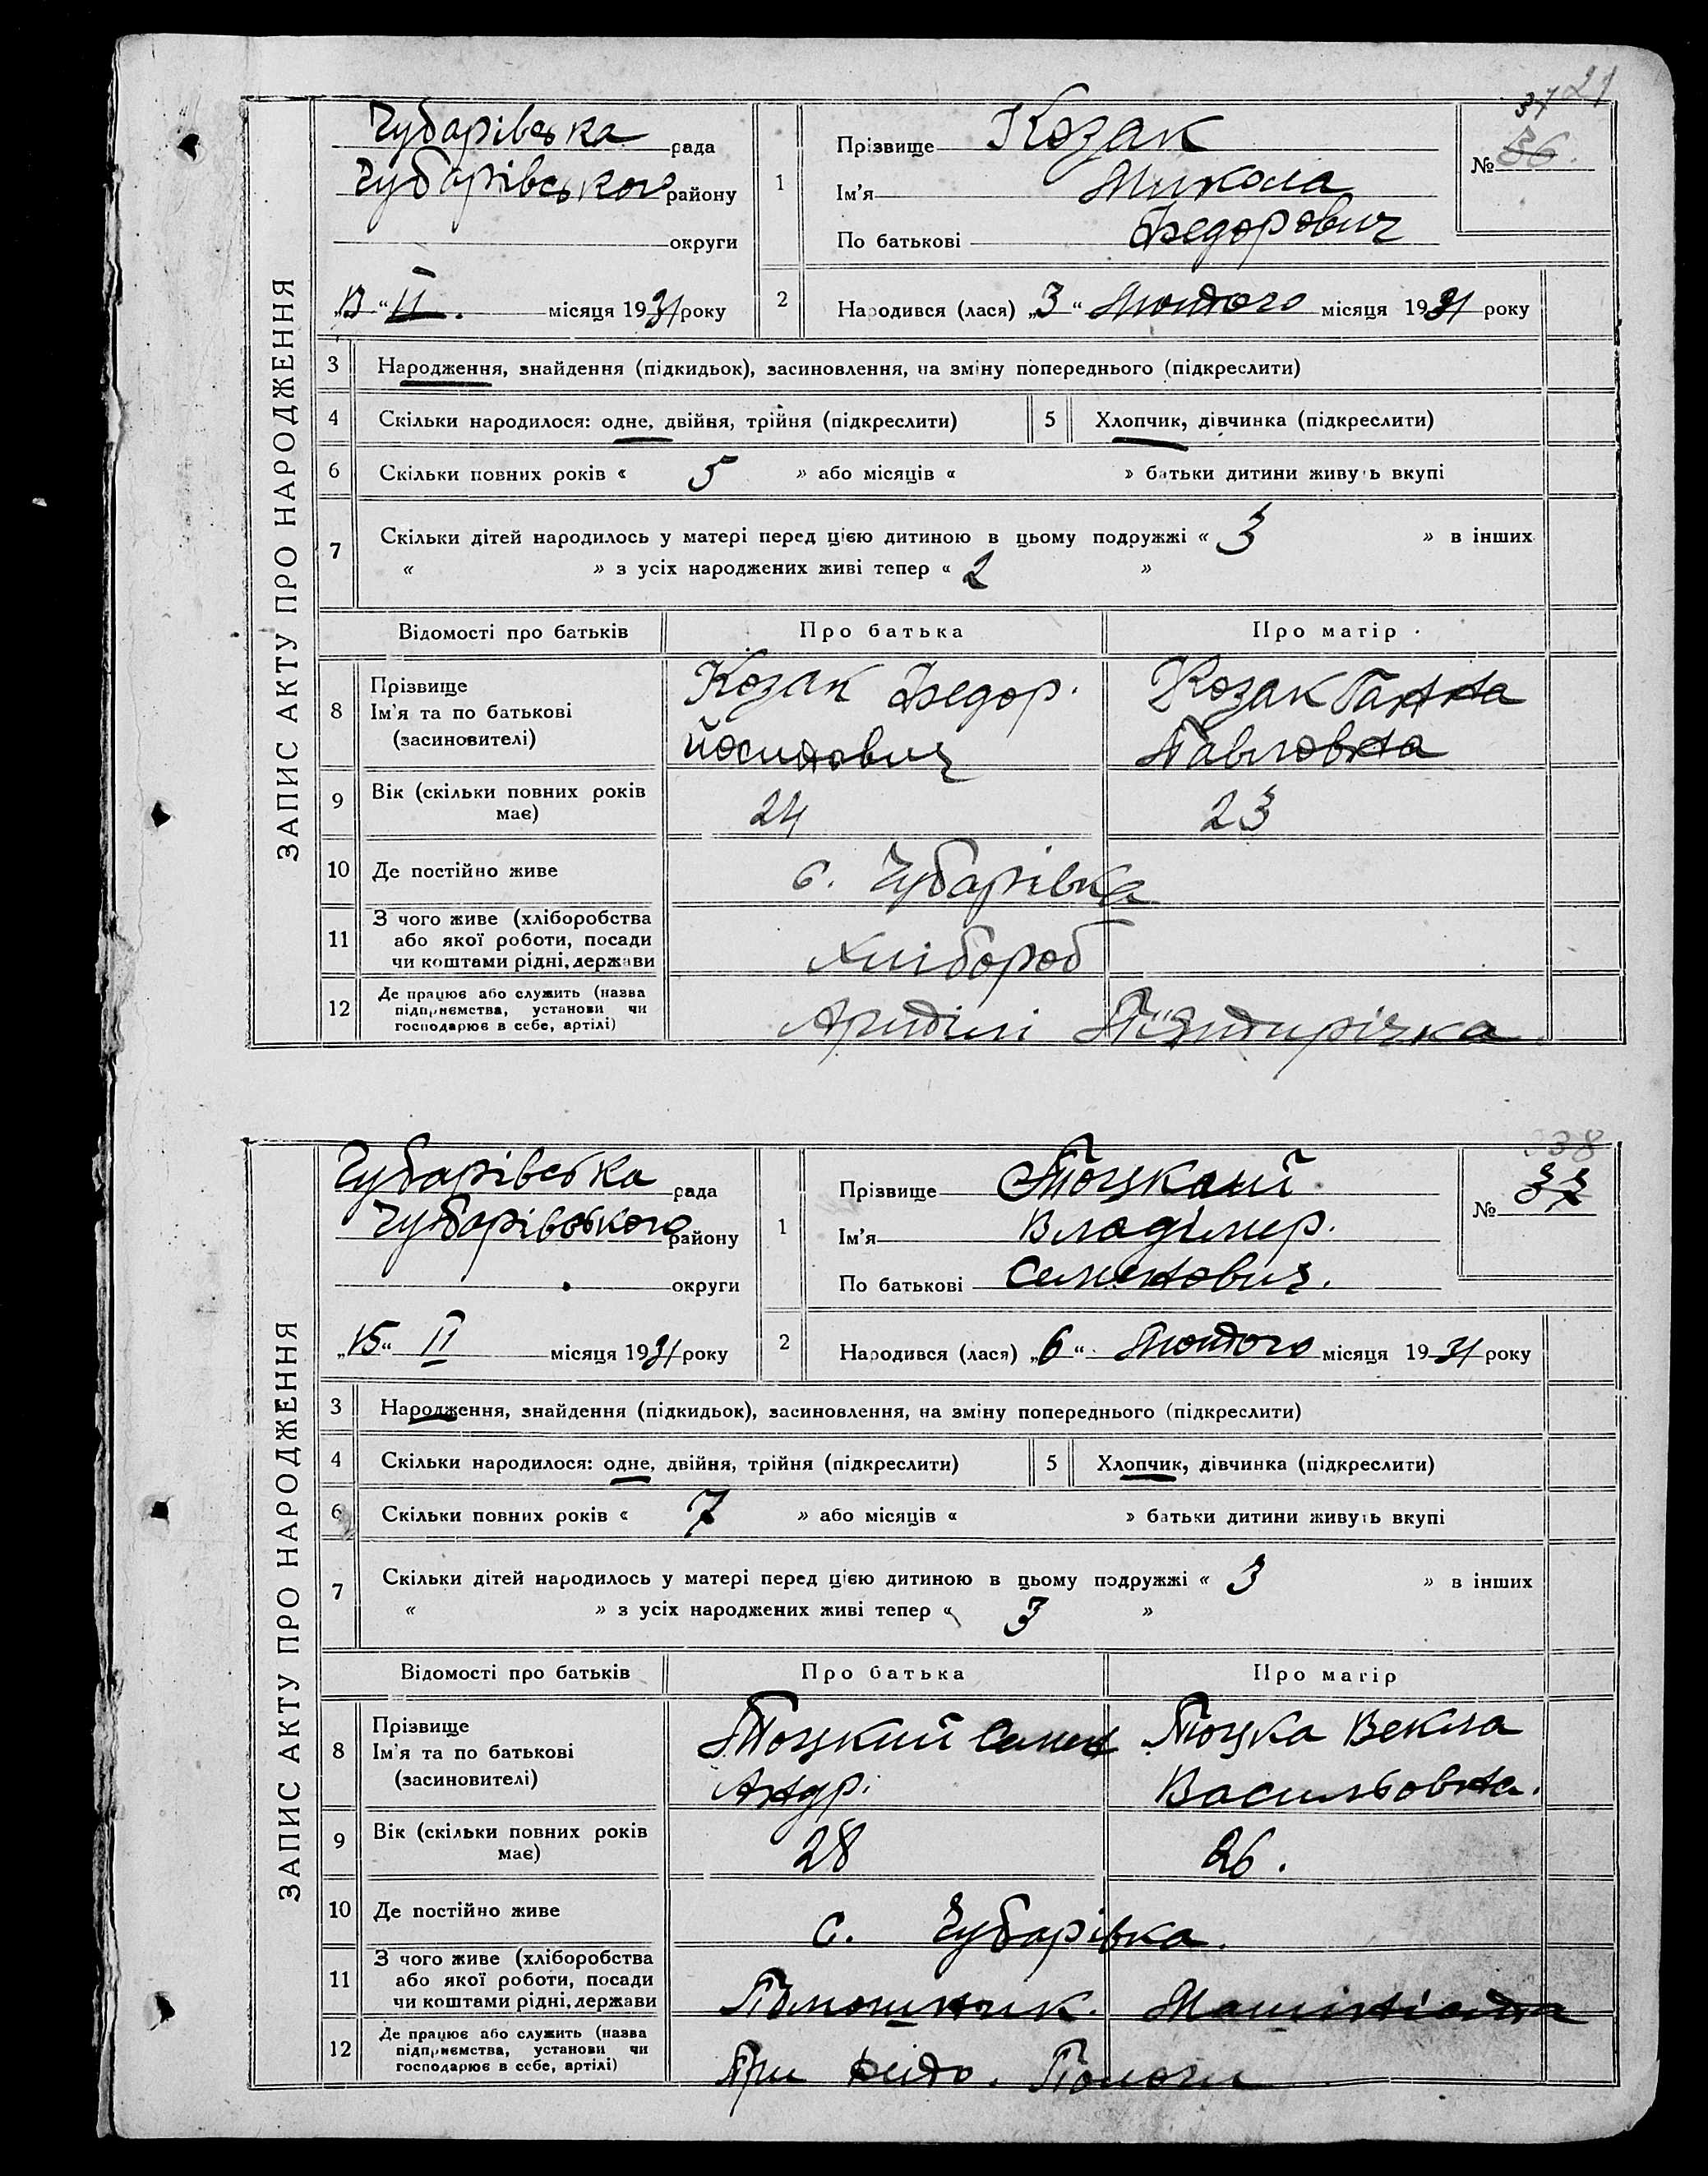 21
ЗАПИС АКТУ ПРО НАРОДЖЕННЯ
Чубарівська рада
Чубарівського району
округи
„13“ II. місяця 1931 року
1
Прізвище Козак
Ім'я Микола
По батькові Федорович
37
№ 36.
2
Народився (лася) „3“ Лютого місяця 1931 року
3
Народження, знайдення (підкидьок), засиновлення, на зміну попереднього (підкреслити)
4
Скільки народилося: одне, двійня, трійня (підкреслити)
5
Хлопчик, дівчинка (підкреслити)
6
Скільки повних років « 5 » або місяців « » батьки дитини живуть вкупі
7
Скільки дітей народилось у матері перед цією дитиною в цьому подружжі « 3 » в інших
« » з усіх народжених живі тепер « 2 »
Відомості про батьків
Про батька
Про матір
8
Прізвище
Ім'я та по батькові
(засиновителі)
Козак Федор.
Йосипович
Козак Ганна
Павловна
9
Вік (скільки повних років
має)
24
23
10
Де постійно живе
с. Чубарівка
11
З чого живе (хліборобства
або якої роботи, посади
чи коштами рідні, держави
Хлібороб
12
Де працює або служить (назва
підприємства, установи чи
господарює в себе, артілі)
Артілі Пятирічка.
ЗАПИС АКТУ ПРО НАРОДЖЕННЯ
Чубарівська рада
Чубарівського району
округи
„15“ II місяця 1931 року
1
Прізвище Тоцкий
Ім'я Владімер.
По батькові Семенович.
38
№ 37
2
Народився (лася) „6“ Лютого місяця 1931 року
3
Народження, знайдення (підкидьок), засиновлення, на зміну попереднього (підкреслити)
4
Скільки народилося: одне, двійня, трійня (підкреслити)
5
Хлопчик, дівчинка (підкреслити)
6
Скільки повних років « 7 » або місяців « » батьки дитини живуть вкупі
7
Скільки дітей народилось у матері перед цією дитиною в цьому подружжі « 3 » в інших
« » з усіх народжених живі тепер « 3 »
Відомості про батьків
Про батька
Про матір
8
Прізвище
Ім'я та по батькові
(засиновителі)
Тоцкий Семен
Андр.
Тоцка Векла
Васильовна.
9
Вік (скільки повних років
має)
28
26.
10
Де постійно живе
с. Чубарівка.
11
З чого живе (хліборобства
або якої роботи, посади
чи коштами рідні, держави
Помошник. Машиніста
12
Де працює або служить (назва
підприємства, установи чи
господарює в себе, артілі)
При Пологи